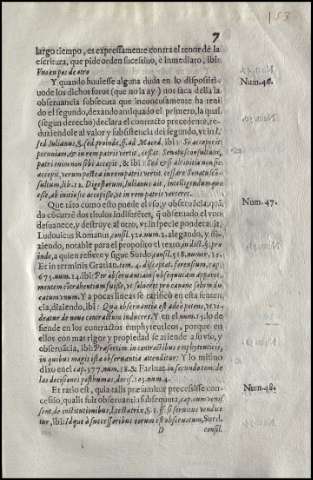 7
153
largo tiempo, es expressamente contra el tenor de la
escritura, que pide orden sucessiuo, e inmediato, ibi:
Vno en pos de otro
Y quando huuiesse alguna duda en lo dispositi-
uo de los dichos fueros (que no la ay) nos saca della la
obseruancia subsecuta que inconcusamente ha teni-
do el segundo, dexando aniquilado el primero, la qual
(según derecho) declara el contracto precedente, re-
duziendole al valor y subsistencia del segundo, vt in l.
sed Iulianus, §. sed proinde, ff. ad Maced. ibi: Si acceperit
pecuniam, & in rem patris vertit, cessat Senatusconsultum,
patri enim non sibi accepit, & ibi: Sed & si ab initio non sic
accepit, verum postea in rem patris vertit cessare Senatuscō-
sultum, lib. 12. Digestorum, Iulianus ait, intelligendumque
esse, ab initio sic accepisse, vt in rem patris verteret.
Num. 46.
Que titulo como este puede el vso, y obseruācia, quā-
do cōcurrē dos titulos indiferētes, q̄ obseruado el vno
desuanece, y destruye al otro, vt in specie ponderat
Ludouicus Romanus, consil. 320. num. 2. alegando, y
notable para el proposito el texto, in dict. §. proin-
de, a quien refiere y sigue Surdo, consil. 558. num. 26.
Et in terminis Gratiano, tom. 4. disceptat. forensium, cap.
675. num. 14. ibi: Per obseruantiam subsequutam
Num. 47.
Y a pocas lineas se ratificò en esta senten-
cia, diziendo, ibi: Quia obseruantia est adeo potens, vt vi-
deatur de nouo contractum inducere. Y en el num. 15. lo de
fiende en los contractos emphyteuticos, porque en
ellos con mas rigor y propiedad se atiende a su vso, y
obseruācia, ibi: Praesertim in contractibus emphyteuticis,
in quibus magis ista obseruantia attenditur: Y lo mismo
dixo en el cap. 377. num. 18. & Farinac. in secunda tom. de
las decisiones posthumas, decis. 105. num. 4.
Et ratio est, quia talis præsumitur precesisse con-
cessio, qualis fuit obseruantia subsequuta, cap. cum veni
ssent, de institutionibus,
Num. 48.
tur, ibi: Id quod à successoribus
D
consil.